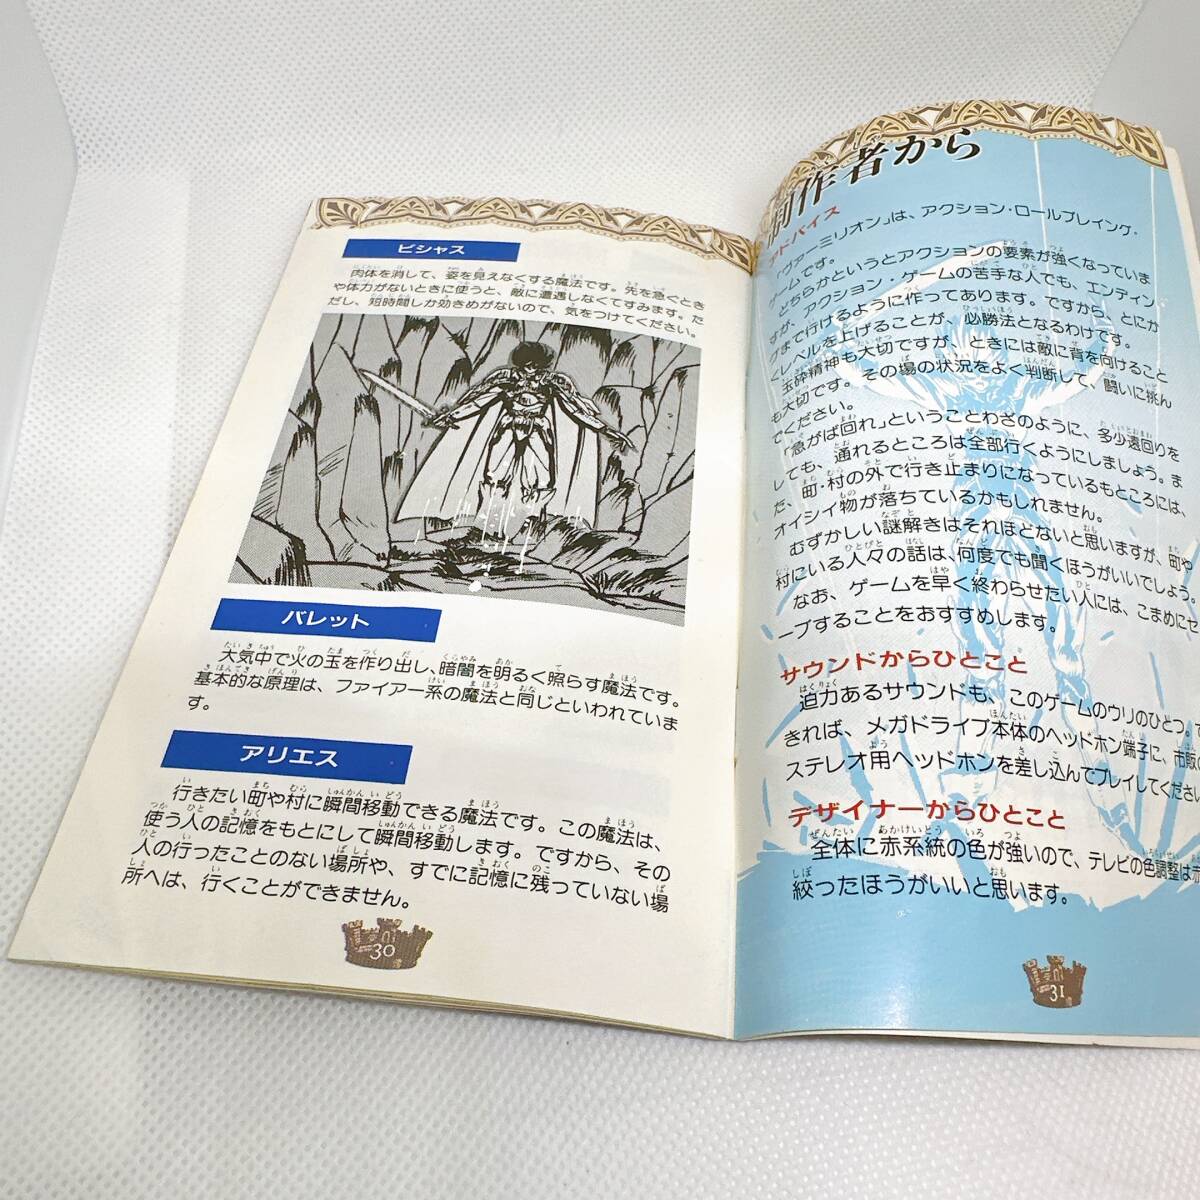 ビシャス
肉体を消して、姿を見えなくする魔法です。先を急ぐとき
や体力がないときに使うと、敵に遭遇しなくてすみます。た
だし、短時間しか効きめがないので、気をつけてください。
バレット
大気中で火の玉を作り出し、暗闇を明るく照らす魔法です。
基本的な原理は、ファイアー系の魔法と同じといわれていま
す。
アリエス
行きたい町や村に瞬間移動できる魔法です。この魔法は、
使う人の記憶をもとにして瞬間移動します。ですから、その
人の行ったことのない場所や、すでに記憶に残っていない場
所へは、行くことができません。
30
制作者から
アドバイス
「ヴァーミリオン」は、アクション・ロールプレイング・
ゲームです。
どちらかというとアクションの要素が強くなっていま
すが、アクション・ゲームの苦手な人でも、エンディン
グまで行けるように作ってあります。ですから、とにか
くレベルを上げることが、必勝法となるわけです。
玉砕精神も大切ですが、ときには敵に背を向けること
も大切です。その場の状況をよく判断して、闘いに挑ん
でください。
「急がば回れ」ということわざのように、多少遠回りを
しても、通れるところは全部行くようにしましょう。ま
た、町・村の外で行き止まりになっているもところには、
オイシイ物が落ちているかもしれません。
むずかしい謎解きはそれほどないと思いますが、町や
村にいる人々の話は、何度でも聞くほうがいいでしょう。
なお、ゲームを早く終わらせたい人には、こまめにセ
ーブすることをおすすめします。
サウンドからひとこと
迫力あるサウンドも、このゲームのウリのひとつ。で
きれば、メガドライブ本体のヘッドホン端子に、市販の
ステレオ用ヘッドホンを差し込んでプレイしてください
デザイナーからひとこと
全体に赤系統の色が強いので、テレビの色調整は赤
絞ったほうがいいと思います。
31